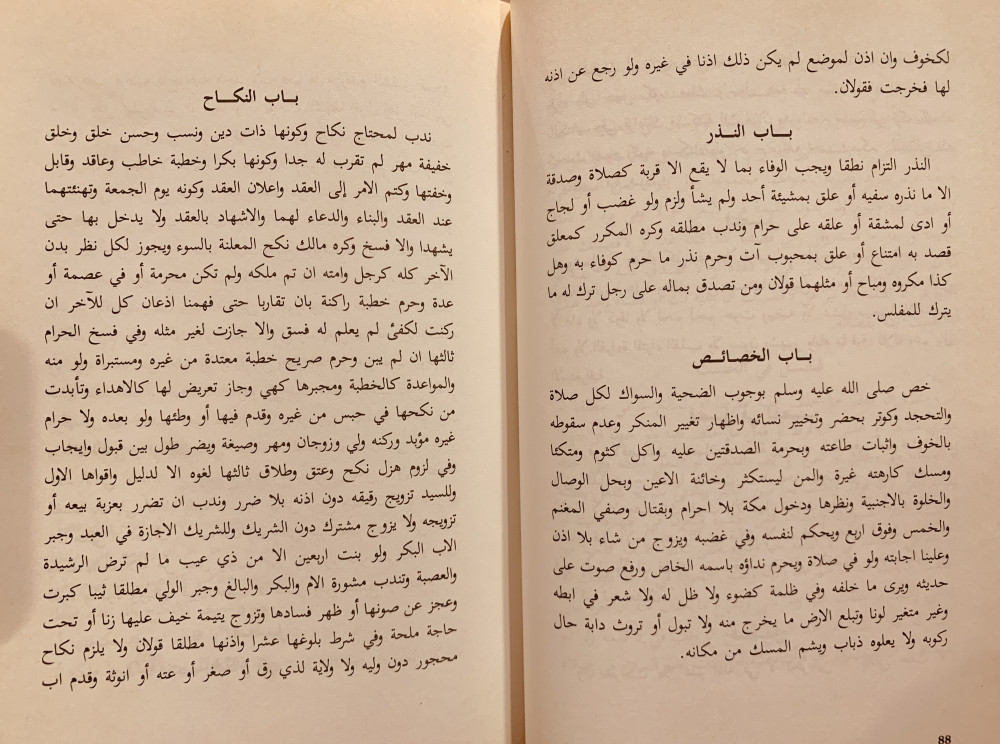 لكخوف وان اذن لموضع لم يكن ذلك اذنا في غيره ولو رجع عن اذنه
لها فخرجت فقولان.
بـاب النـذر
النذر التزام نطقا ويجب الوفاء بما لا يقع الا قربة كصلاة وصدقة
الا ما نذره سفيه أو علق بمشيئة أحد ولم يشأ ولزم ولو غضب أو لجاج
أو ادى لمشقة أو علقه على حرام وندب مطلقه وكره المكرر كمعلق
قصد به امتناع أو علق بمحبوب آت وحرم نذر ما حرم كوفاء به وهل
كذا مكروه ومباح أو مثلهما قولان ومن تصدق بماله على رجل ترك له ما
يترك للمفلس.
بـاب الخصائـص
خص صلى الله عليه وسلم بوجوب الضحية والسواك لكل صلاة
والتحجد وكوتر بحضر وتخيير نسائه واظهار تغيير المنكر وعدم سقوطه
بالخوف واثبات طاعته وبحرمة الصدقتين عليه واكل كثوم ومتكئا
ومسك كارهته غيرة والمن ليستكثر وخائنة الاعين وبحل الوصال
والخلوة بالاجنبية ونظرها ودخول مكة بلا احرام وبقتال وصفي المغنم
والخمس وفوق اربع ويحكم لنفسه وفي غضبه ويزوج من شاء بلا اذن
وعلينا اجابته ولو في صلاة ويحرم نداؤه باسمه الخاص ورفع صوت على
حديثه ويرى ما خلفه وفي ظلمة كضوء ولا ظل له ولا شعر في ابطه
وغير متغير لونا وتبلع الارض ما يخرج منه ولا تبول أو تروث دابة حال
ركوبه ولا يعلوه ذباب ويشم المسك من مكانه.
88
بـاب النكـاح
ندب لمحتاج نكاح وكونها ذات دين ونسب وحسن خلق وخلق
خفيفة مهر لم تقرب له جدا وكونها بكرا وخطبة خاطب وعاقد وقابل
وخفتها وكتم الامر إلى العقد واعلان العقد وكونه يوم الجمعة وتهنئتهما
عند العقد والبناء والدعاء لهما والاشهاد بالعقد ولا يدخل بها حتى
يشهدا والا فسخ وكره مالك نكح المعلنة بالسوء ويجوز لكل نظر بدن
الآخر كله كرجل وامته ان تم ملكه ولم تكن محرمة أو في عصمة أو
عدة وحرم خطبة راكنة بان تقاربا حتى فهمنا اذعان كل للآخر ان
ركنت لكفئ لم يعلم له فسق والا جازت لغير مثله وفي فسخ الحرام
ثالثها ان لم يبن وحرم صريح خطبة معتدة من غيره ومستبراة ولو منه
والمواعدة كالخطبة ومجبرها كهي وجاز تعريض لها كالاهداء وتأبدت
من نكحها في حبس من غيره وقدم فيها أو وطئها ولو بعده ولا حرام
غيره مؤبد وركنه ولي وزوجان ومهر وصيغة ويضر طول بين قبول وايجاب
وفي لزوم هزل نكح وعتق وطلاق ثالثها لغوه الا لدليل واقواها الاول
وللسيد تزويج رقيقه دون اذنه بلا ضرر وندب ان تضرر بعزبة بيعه أو
تزويجه ولا يزوج مشترك دون الشريك وللشريك الاجازة في العبد وجبر
الاب البكر ولو بنت اربعين الا من ذي عيب ما لم ترض الرشيدة
والعصبة وتندب مشورة الام والبكر والبالغ وجبر الولي مطلقا ثيبا كبرت
وعجز عن صونها أو ظهر فسادها وتزوج يتيمة خيف عليها زنا أو تحت
حاجة ملحة وفي شرط بلوغها عشرا واذنها مطلقا قولان ولا يلزم نكاح
محجور دون وليه ولا ولاية لذي رق أو صغر أو عته أو انوثة وقدم اب